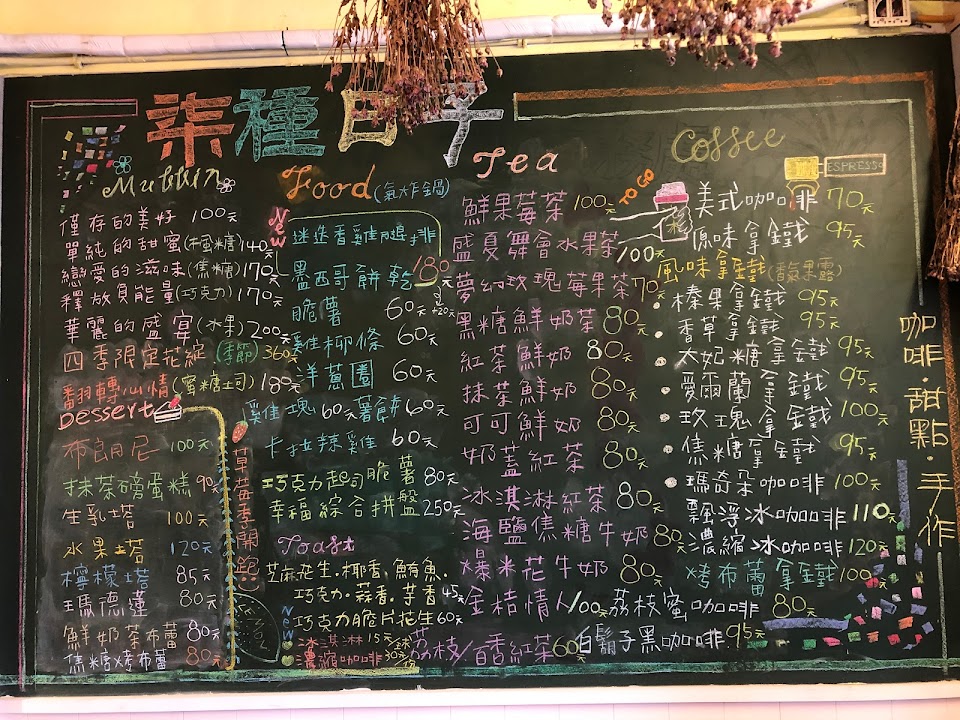 柒種日子
Muffin
僅存的美好 100元
單純的甜蜜(楓糖)140元
戀愛的滋味(焦糖)170元
釋放負能量(巧克力)170元
華麗的盛宴(水果)200元
四季限定花綻(季節)360元
翻轉心情(蜜糖土司)180元
Dessert
布朗尼 100元
抹茶磅蛋糕 90元
生乳塔 100元
水果塔 120元
檸檬塔 85元
瑪德蓮 80元
鮮奶茶布蕾 80元
焦糖烤布蕾 80元
草莓季開
Food(氣炸鍋)
New
迷迭香雞腿排
墨西哥餅乾 180元
+20元
脆薯 60元
雞柳條 60元
洋蔥圈 60元
雞塊 60元 薯餅 60元
卡拉辣雞 60元
巧克力起司脆薯 80元
幸福綜合拼盤 250元
Toast
芝麻.花生.椰香.鮪魚.
巧克力.蒜香.芋香 45元
巧克力脆片花生 60元
NEW
冰淇淋 15元/球
濃縮咖啡 30元/份
Tea
鮮果莓茶 100元
盛夏舞會水果茶 100元
夢幻玫瑰莓果茶 70元
黑糖鮮奶茶 80元
紅茶鮮奶 80元
抹茶鮮奶 80元
可可鮮奶 80元
奶蓋紅茶 80元
冰淇淋紅茶 80元
海鹽焦糖牛奶 80元
爆米花牛奶 80元
金桔情人 100元
荔枝/百香紅茶 60元
Coffee
ESPRESSO
TO GO
美式咖啡 70元
原味拿鐵 95元
風味拿鐵(香氣果露)
榛果拿鐵 95元
香草拿鐵 95元
太妃糖拿鐵 95元
愛爾蘭拿鐵 95元
玫瑰拿鐵 100元
焦糖拿鐵 95元
瑪奇朵咖啡 100元
飄浮冰咖啡 110元
濃縮冰咖啡 120元
烤布蕾拿鐵 100元
荔枝蜜咖啡 80元
白鬍子黑咖啡 95元
咖啡.甜點.手作